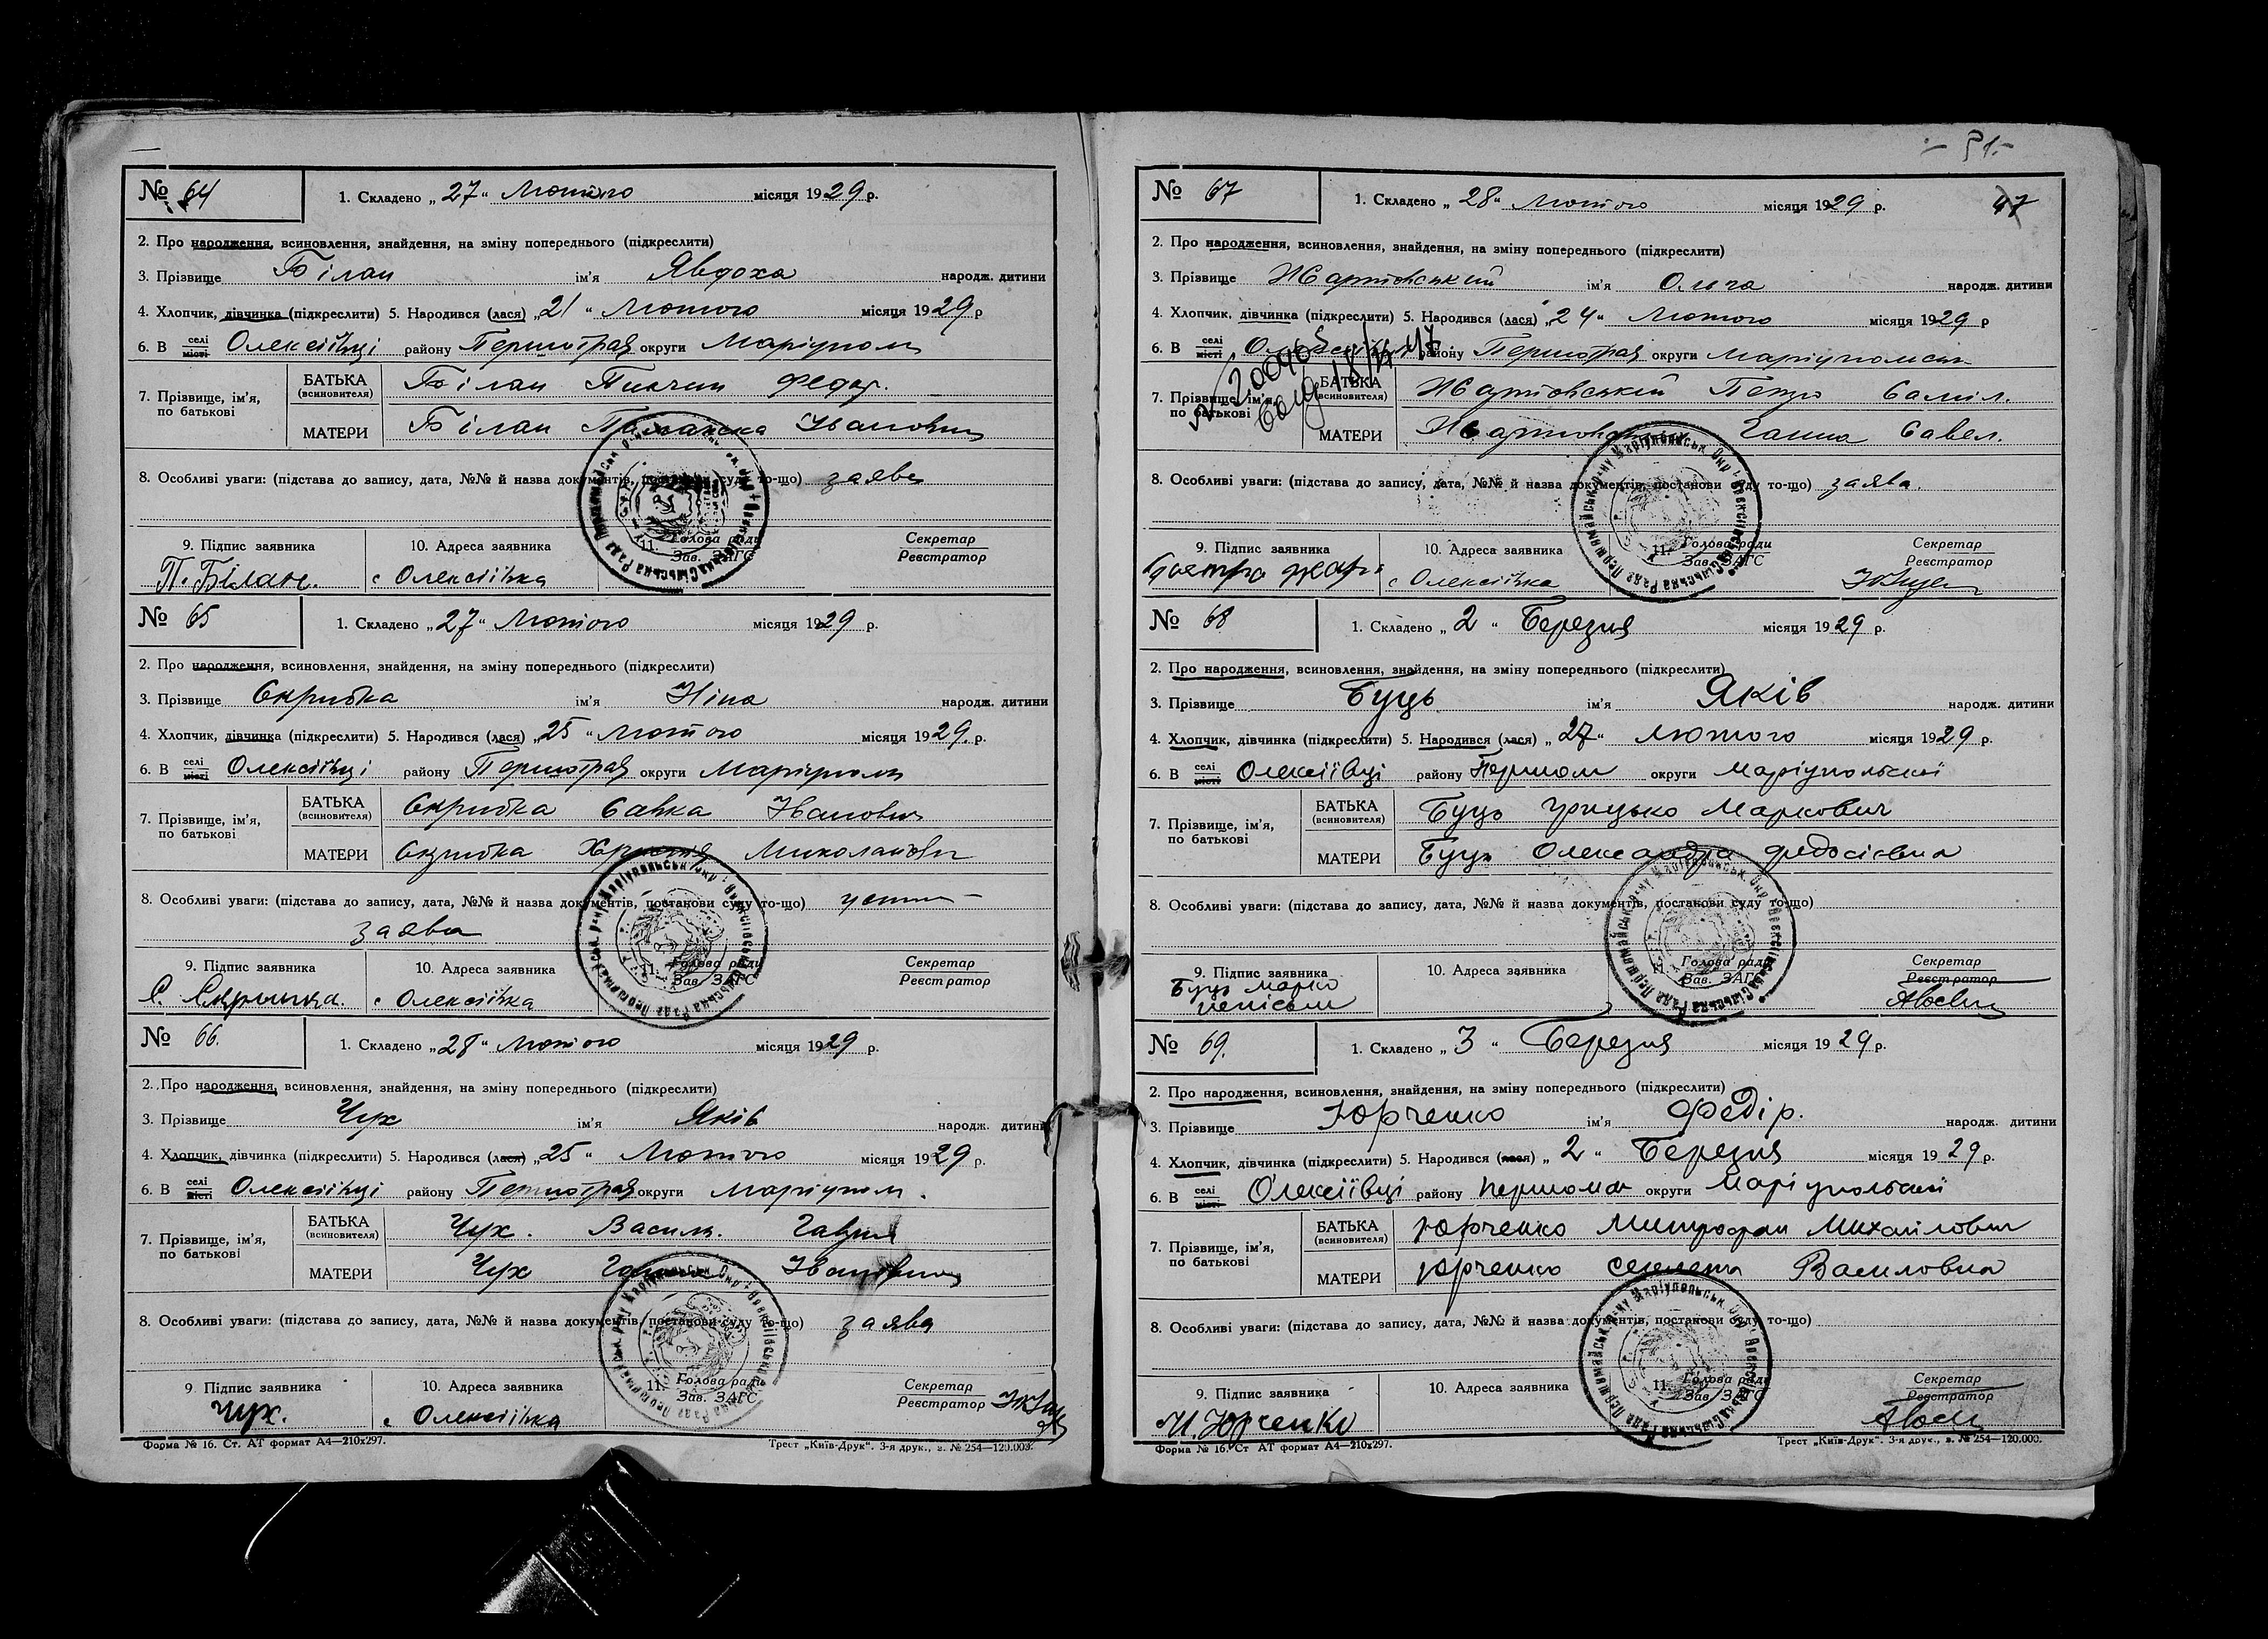 № 64
1. Складено „27“ Лютого місяця 1929 р.
2. Про народження, всиновлення, знайдення, на зміну попереднього (підкреслити)
3. Прізвище Білан ім'я Явдоха народж. дитини
4. Хлопчик, дівчинка (підкреслити) 5. Народився (лася) „21“ Лютого місяця 1929 р
6. В селі місті Олексіївці району Першотрав округи Маріупол
7. Прізвище, ім'я, по батькові
БАТЬКА (всиновителя) Білан Федор.
МАТЕРИ Білан Ивановн
8. Особливі уваги: (підстава до запису, дата, №№ й назва документів, постанови суду то-що) заява
9. Підпис заявника 10. Адреса заявника 11. Голова ради Зав. ЗАГС Секретар Реєстратор
П. Білан. с Олексіївка
№ 65
1. Складено „27“ Лютого місяця 1929 р.
2. Про народження, всиновлення, знайдення, на зміну попереднього (підкреслити)
3. Прізвище Скрипка ім'я Ніна народж. дитини
4. Хлопчик, дівчинка (підкреслити) 5. Народився (лася) „25“ Лютого місяця 1929. р.
6. В селі місті Олексіївці району Першотрав округи Маріупол
7. Прізвище, ім'я, по батькові
БАТЬКА (всиновителя) Скрипка Савка Иванович
МАТЕРИ Скрипка Христя Миколаївн
8. Особливі уваги: (підстава до запису, дата, №№ й назва документів, постанови суду то-що) устн—
заява
9. Підпис заявника 10. Адреса заявника 11. Голова ради Зав. ЗАГС Секретар Реєстратор
С. Скрипка. с Олексіївка
№ 66.
1. Складено „28“ Лютого місяця 1929 р.
2. Про народження, всиновлення, знайдення, на зміну попереднього (підкреслити)
3. Прізвище Чух ім'я Яків народж. дитини
4. Хлопчик, дівчинка (підкреслити) 5. Народився (лася) „25“ Лютого місяця 1929 р.
6. В селі місті Олексіївці району Першотрав округи Маріупол.
7. Прізвище, ім'я, по батькові
БАТЬКА (всиновителя) Чух. Василь. Гаврил
МАТЕРИ Чух Ганна Ивановна
8. Особливі уваги: (підстава до запису, дата, №№ й назва документів, постанови суду то-що) заява
9. Підпис заявника 10. Адреса заявника 11. Голова ради Зав. ЗАГС Секретар Реєстратор
Чух. с Олексіївка
Форма № 16. Ст. АТ формат А4—210х297. Трест „Київ-Друк“. 3-я друк., з. № 254—120.000.
- 51-
№ 67
1. Складено „28“ Лютого місяця 1929 р. 47
2. Про народження, всиновлення, знайдення, на зміну попереднього (підкреслити)
3. Прізвище Жартовський ім'я Ольга народж. дитини
4. Хлопчик, дівчинка (підкреслити) 5. Народився (лася) „24“ Лютого місяця 1929 р
6. В селі місті Олексіївці району Першотрав округи Маріупольськ
7. Прізвище, ім'я, по батькові
БАТЬКА (всиновителя) Жартовський Петро Саміл.
МАТЕРИ Жартовськ Ганна Савел.
8. Особливі уваги: (підстава до запису, дата, №№ й назва документів, постанови суду то-що) заява.
9. Підпис заявника 10. Адреса заявника 11. Голова ради Зав. ЗАГС Секретар Реєстратор
с Олексіївка
№ 68
1. Складено „2“ Березня місяця 1929 р.
2. Про народження, всиновлення, знайдення, на зміну попереднього (підкреслити)
3. Прізвище Буць ім'я Яків народж. дитини
4. Хлопчик, дівчинка (підкреслити) 5. Народився (лася) „27“ Лютого місяця 1929 р.
6. В селі місті Олексіївці району Першом округи Маріупольської
7. Прізвище, ім'я, по батькові
БАТЬКА (всиновителя) Буць Грицько Маркович
МАТЕРИ Буць Олександра Федосієвна
8. Особливі уваги: (підстава до запису, дата, №№ й назва документів, постанови суду то-що)
9. Підпис заявника 10. Адреса заявника 11. Голова ради Зав. ЗАГС Секретар Реєстратор
Буць Марко
№ 69.
1. Складено „3“ Березня місяця 1929 р.
2. Про народження, всиновлення, знайдення, на зміну попереднього (підкреслити)
3. Прізвище Юрченко ім'я Федір. народж. дитини
4. Хлопчик, дівчинка (підкреслити) 5. Народився (лася) „2“ Березня місяця 1929 р.
6. В селі місті Олексіївці району Першомай округи Маріупольської
7. Прізвище, ім'я, по батькові
БАТЬКА (всиновителя) Юрченко Митрофан Михайлович
МАТЕРИ Юрченко Секлета Василовна
8. Особливі уваги: (підстава до запису, дата, №№ й назва документів, постанови суду то-що)
9. Підпис заявника 10. Адреса заявника 11. Голова ради Зав. ЗАГС Секретар Реєстратор
И. Юрченко
Форма № 16. Ст АТ формат А4—210х297. Трест „Київ-Друк“. 3-я друк., з. № 254—120.000.